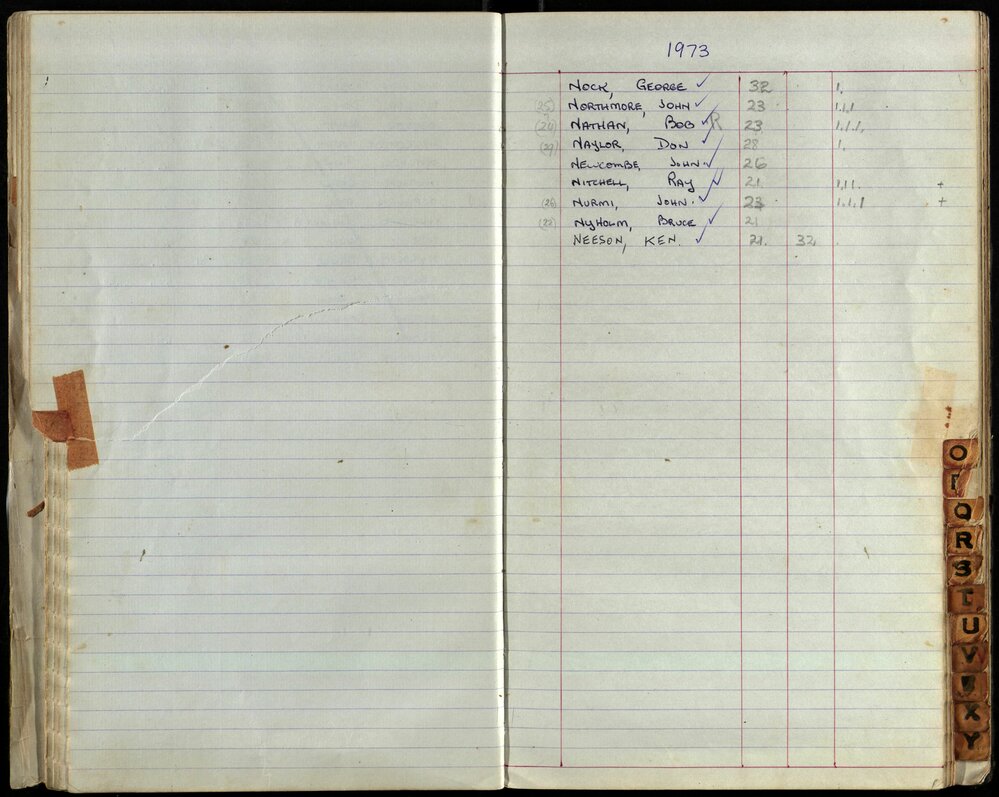 1973
NOCK, GEORGE ✓ 32 1.
(25) NORTHMORE, JOHN ✓ 23 1.1.1
NATHAN, BOB ✓ R 23 1.1.1.
NAYLOR, DON ✓ 28 1.
NEWCOMBE, JOHN. ✓ 26
NITCHELL, RAY ✓ 21. 1.1.1. +
(26) NURMI, JOHN. ✓ 23 1.1.1 +
(22) NYHOLM, BRUCE ✓ 21
NEESON, KEN. ✓ 21. 32
O
Q
R
S
T
U
V
X
Y